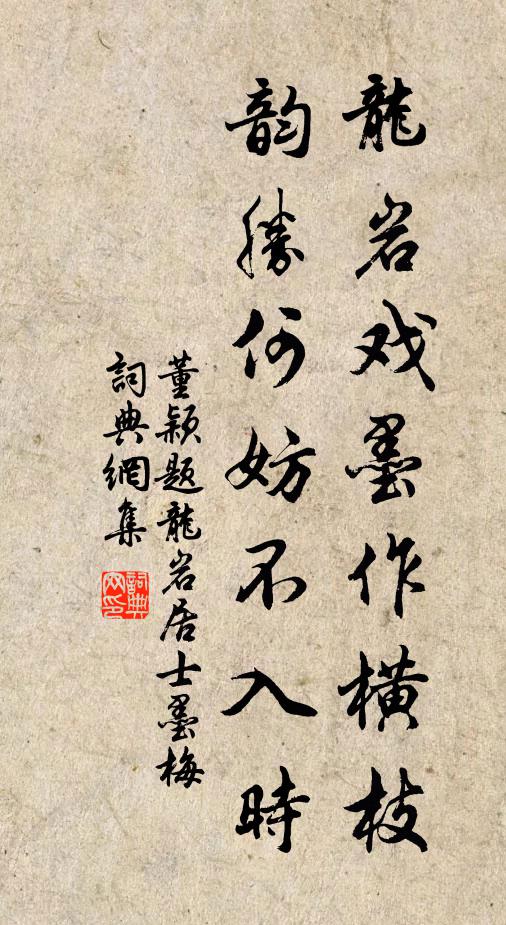 龍岩戏墨作横枝
韵勝何妨不入時
董颖题龍岩居士墨梅
詞典網集
詞典
网印